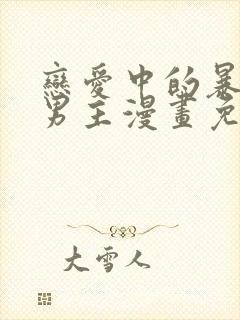 戀愛中的暴
男主漫畫免
大雪人